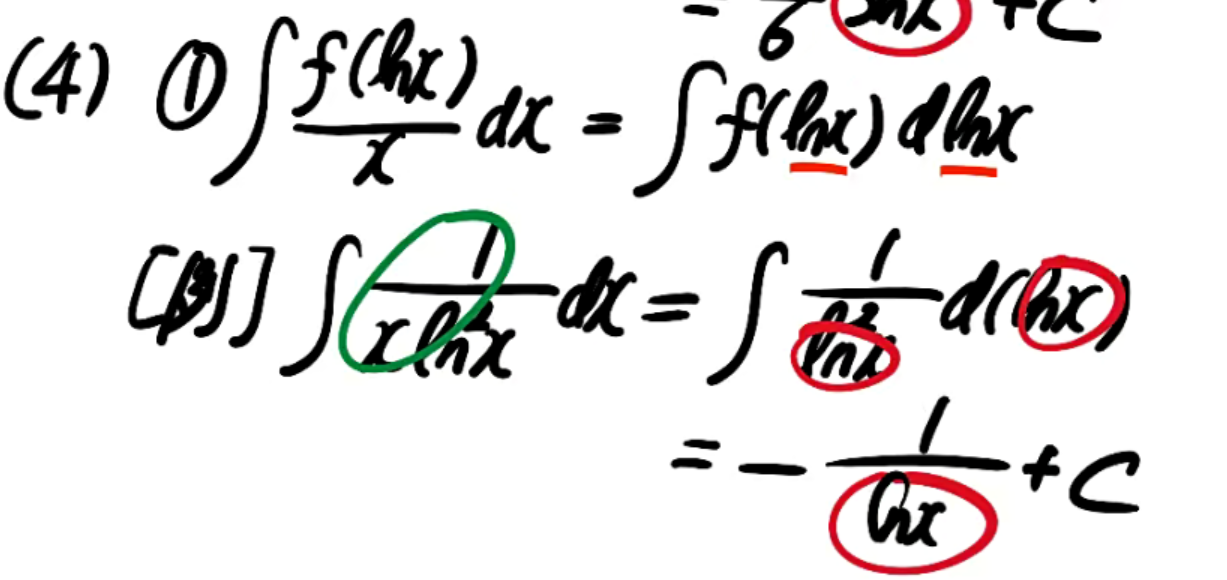 = 1/6 sin⁶x + C
(4) ① ∫ f(lnx)/x dx = ∫ f(lnx) d lnx
[例] ∫ 1/(x ln²x) dx = ∫ 1/ln²x d(lnx)
= - 1/lnx + C